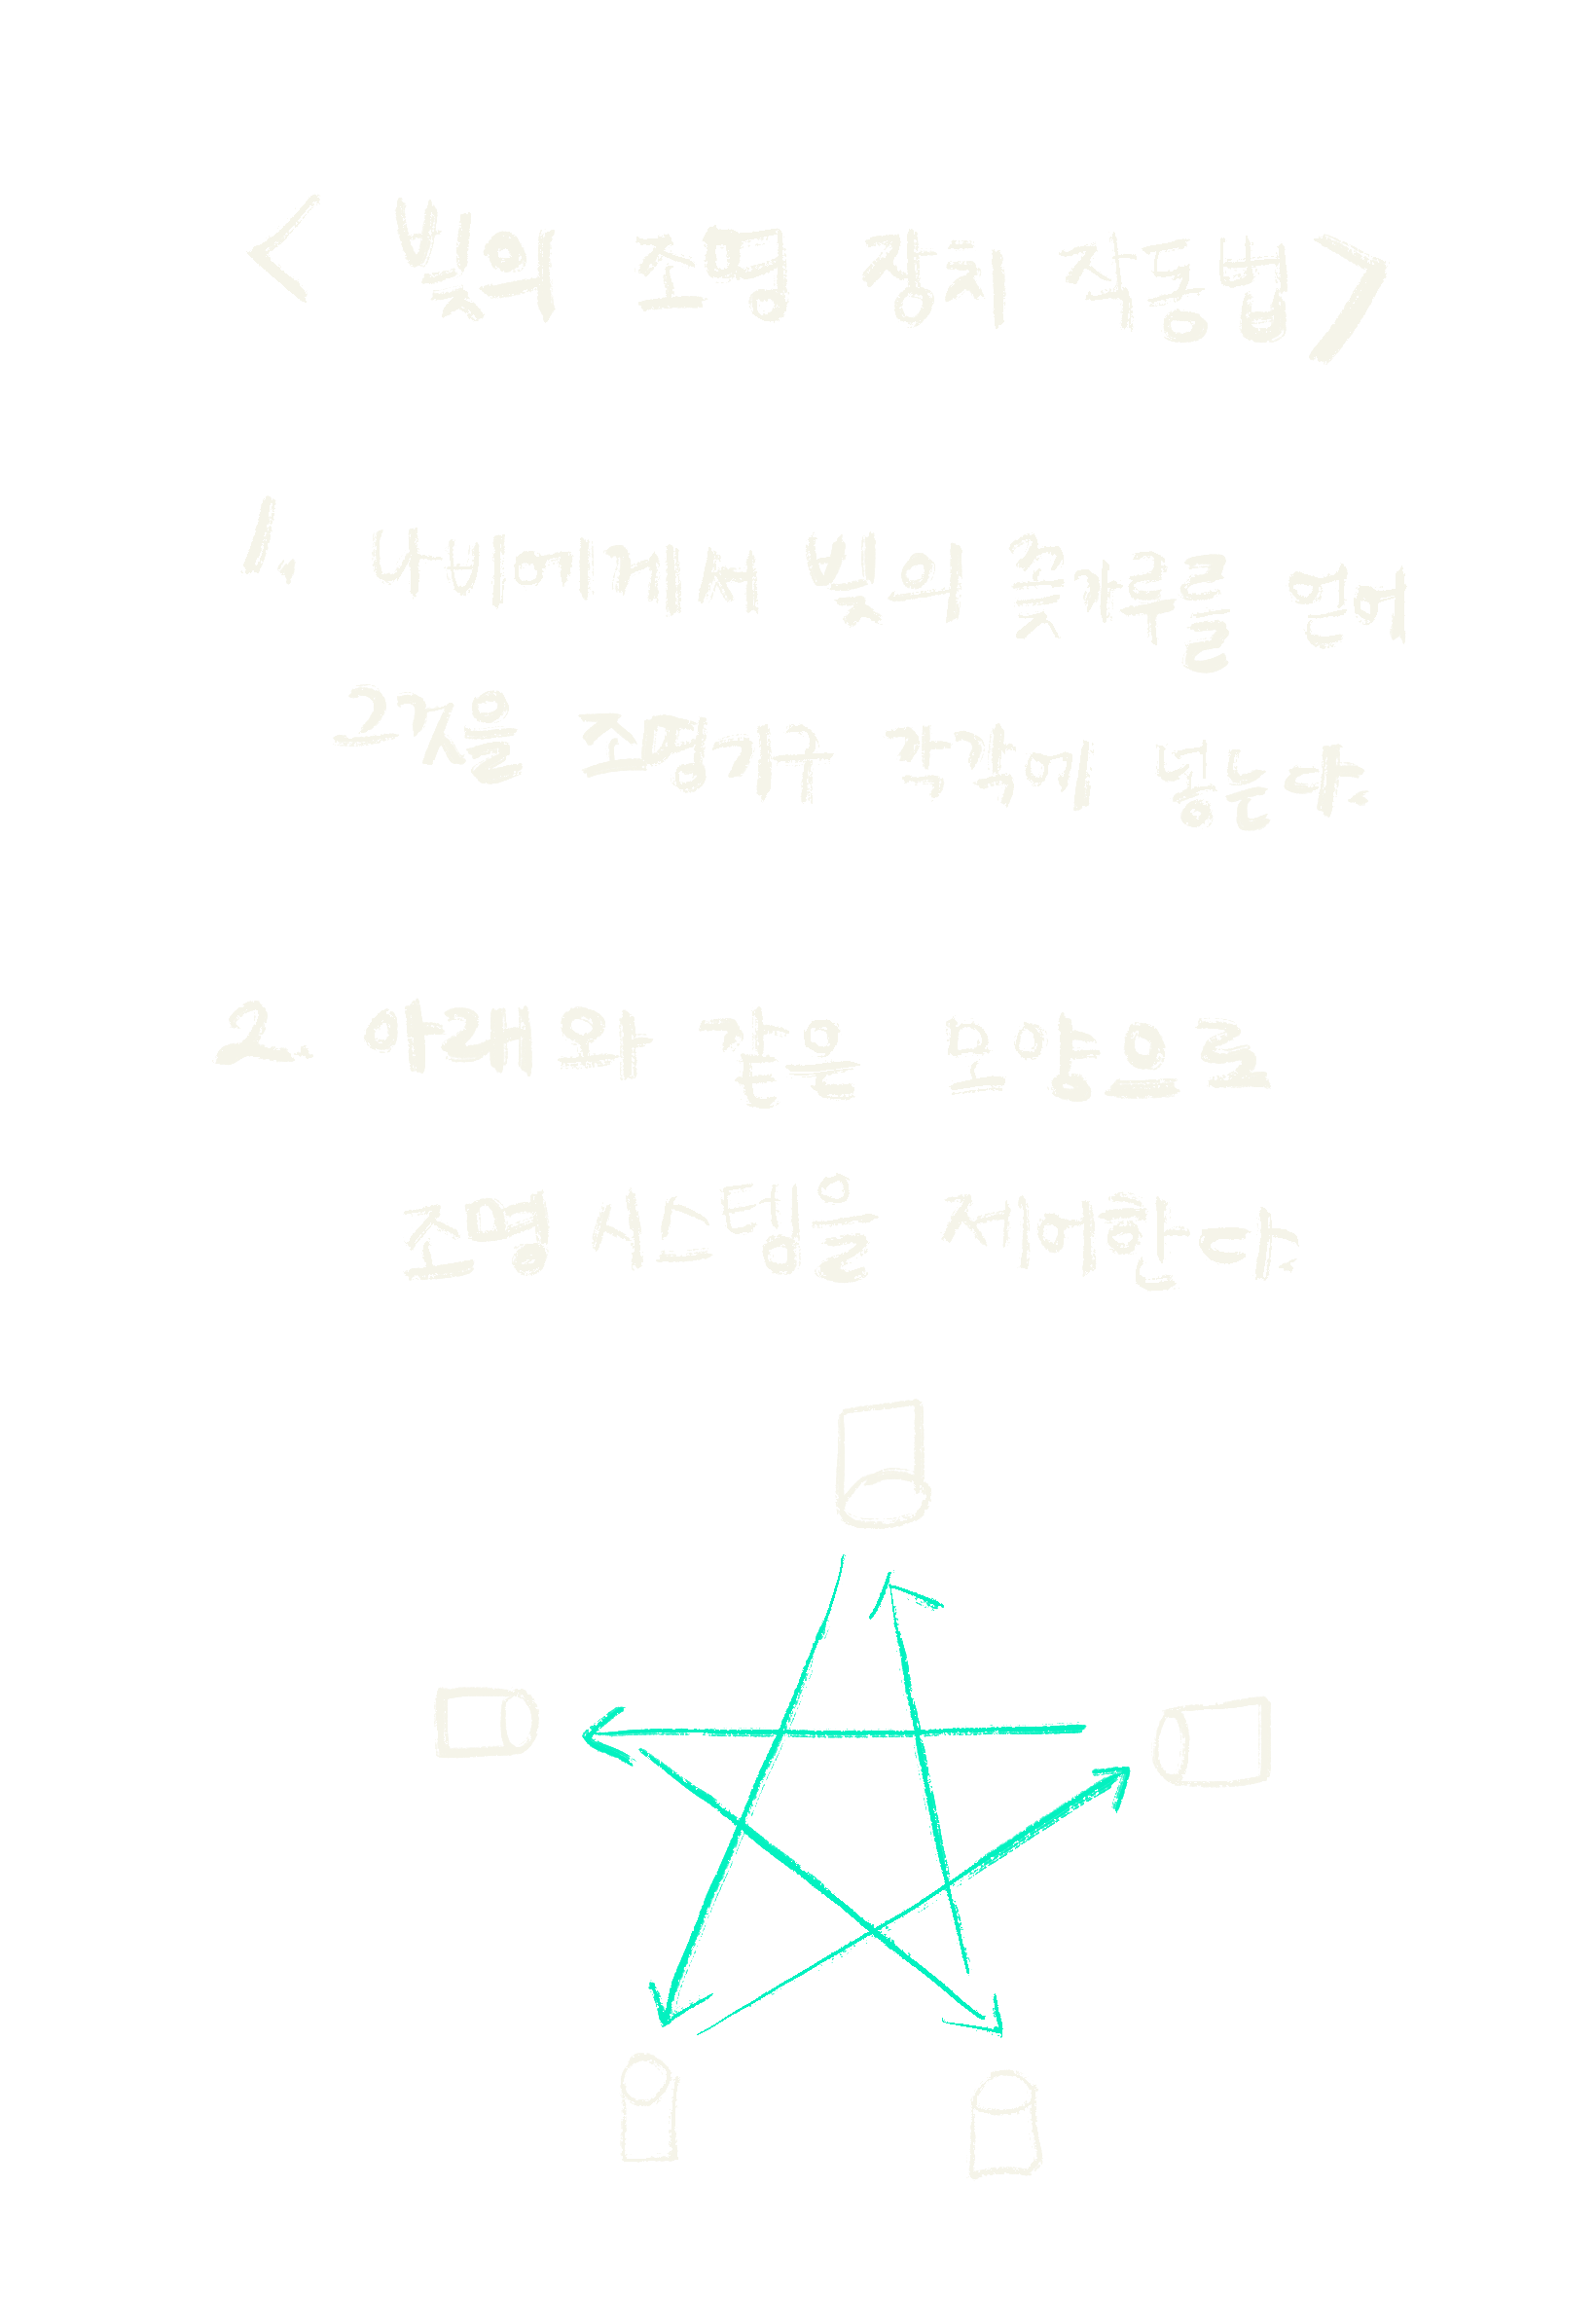 < 빛의 조명 장치 작동법>
1. 나비에게서 빛의 꽃가루를 얻어
그것을 조명기구 각각에 넣는다.
2. 아래와 같은 모양으로
조명 시스템을 제어한다.